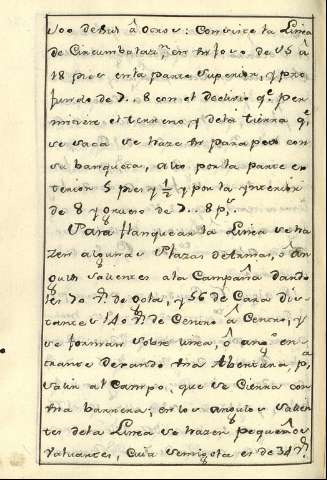 Uso de sus â Otros: Consiste la Linea
de Circumbalaz.ⁿ, en un foso de 15 â
18 pies en la parte superior, y pro
fundo de 7.. 8 con el declivio q.ᵉ per
mitiere el terreno, y dela tierra q.ᵉ
se saca se haze un parapeto con
su banqueta, alto por la parte ex
terior 5 pies y ½ y por la ynterior
de 8 y grueso de 7... 8 p.ˢ.
Para flanquear la Linea se ha
zen algunas Plazas de Armas, ô An
gulos salientes ala Campaña dando
les 30 v.ˢ de Gola, y 56 de Cara dis
tantes 140 v.ˢ de Centro â Centro, y
se forman sobre linea, ô ang.º en
trante dexando una Abertura, p.ª
salir al Campo, que se Cierra con
una barrera, en los angulos salien
tes dela Linea se hazen pequeños
Valuartes, Cuia semigola es de 34 v.ˢ